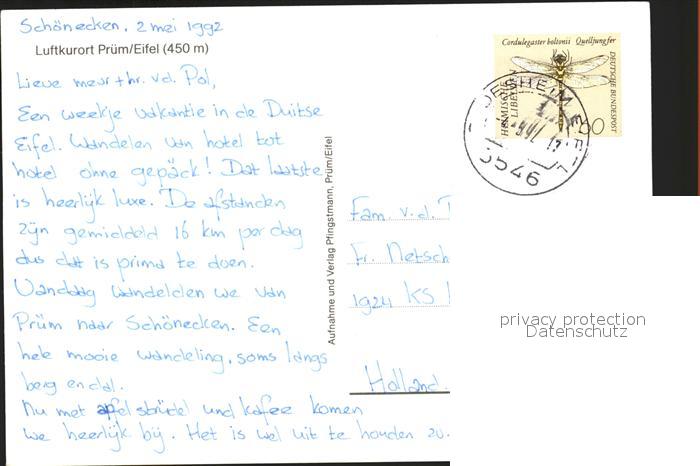 Schönecken, 2 mei 1992
Luftkurort Prüm/Eifel (450 m)
Lieve meur + hr. v.d. Pol,
Een weekje vakantie in de Duitse
Eifel. Wandelen van hotel tot
hotel ohne gepäck! Dat laatste
is heerlijk luxe. De afstanden
zijn gemiddeld 16 km per dag
dus dat is prima te doen.
Vandaag wandelden we van
Prüm naar Schönecken. Een
hele mooie wandeling, soms langs
berg en dal.
Nu met apfelstrüdel und kafee komen
we heerlijk bij. Het is wel uit te houden zo.
Aufnahme und Verlag Pfingstmann, Prüm/Eifel
Cordulegaster boltonii Quelljungfer
HEIMISCHE
LIBELLEN
DEUTSCHE BUNDESPOST
5546
Fam. v.d.
Fr. Netsch
1924 KS
Holland.
privacy protection
Datenschutz